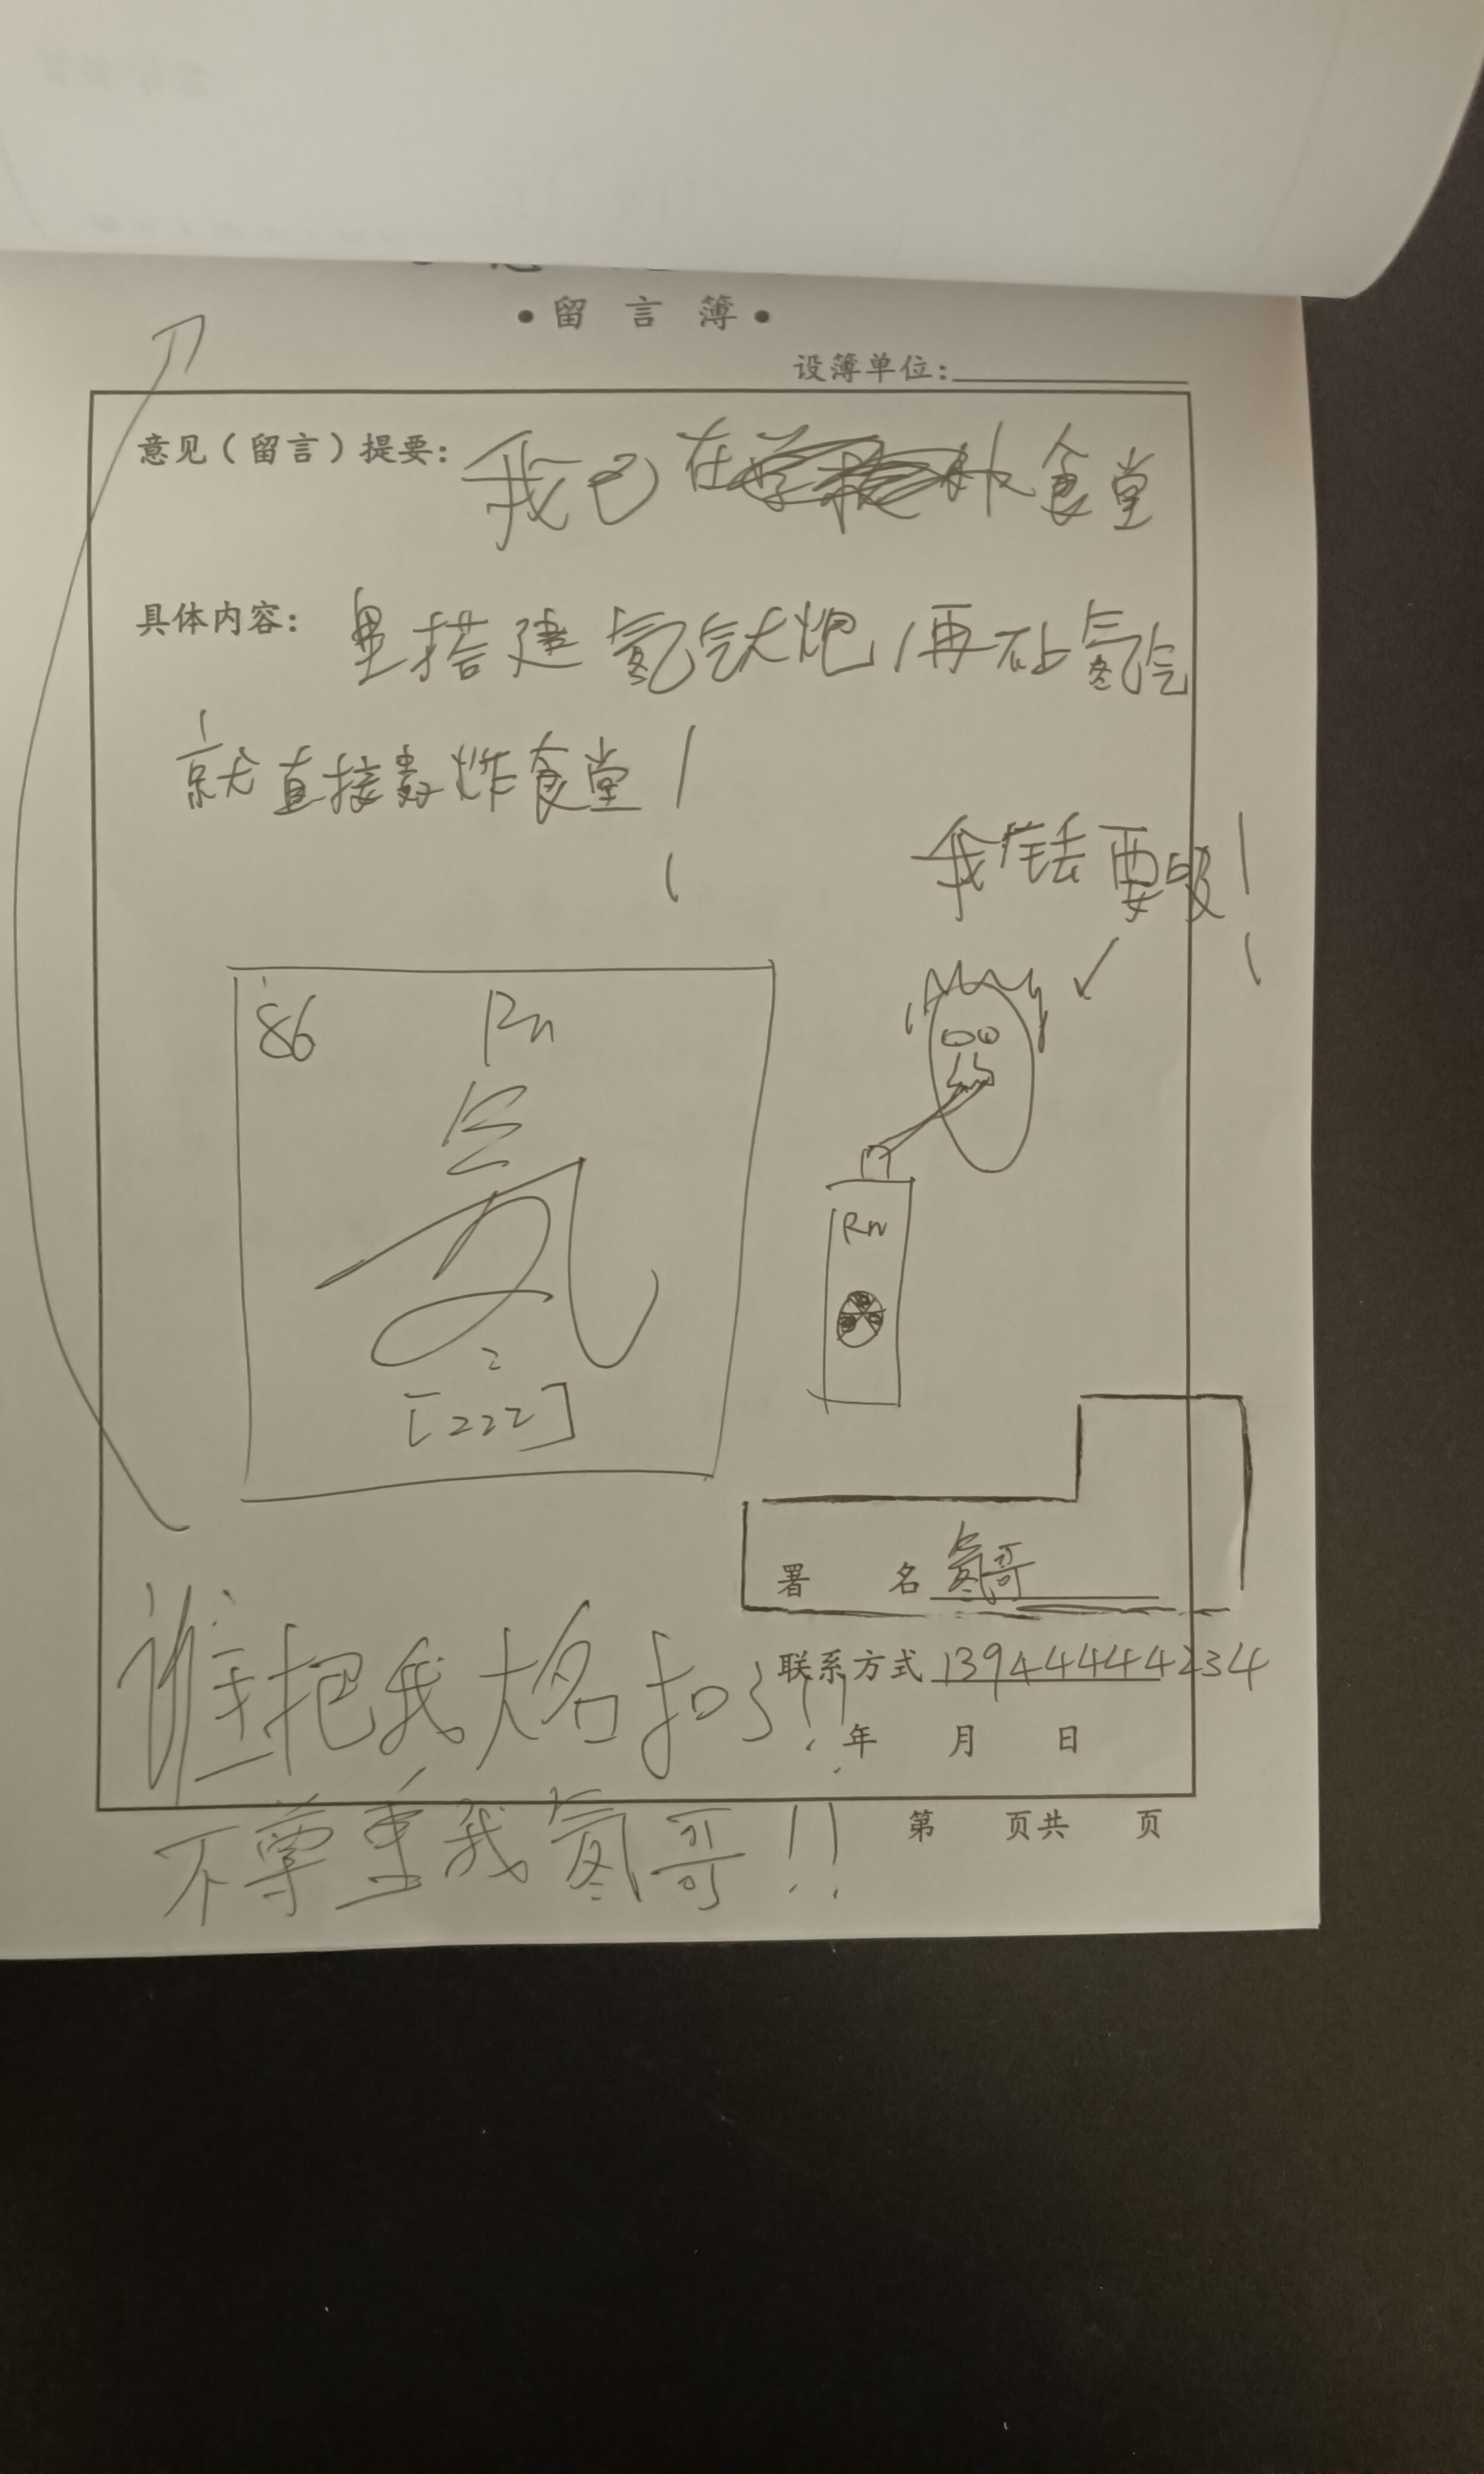 •留言簿•
设簿单位:
意见(留言)提要: 我已在食堂
具体内容: 里搭建氡气大炮,再不上氡气
就直接轰炸食堂!
我就要吸!
86 Rn
氡
[222]
Rn
署 名 氡哥
谁把我大名扣了!!
联系方式 139444444234
年 月 日
不尊重我氡哥!!
第 页共 页